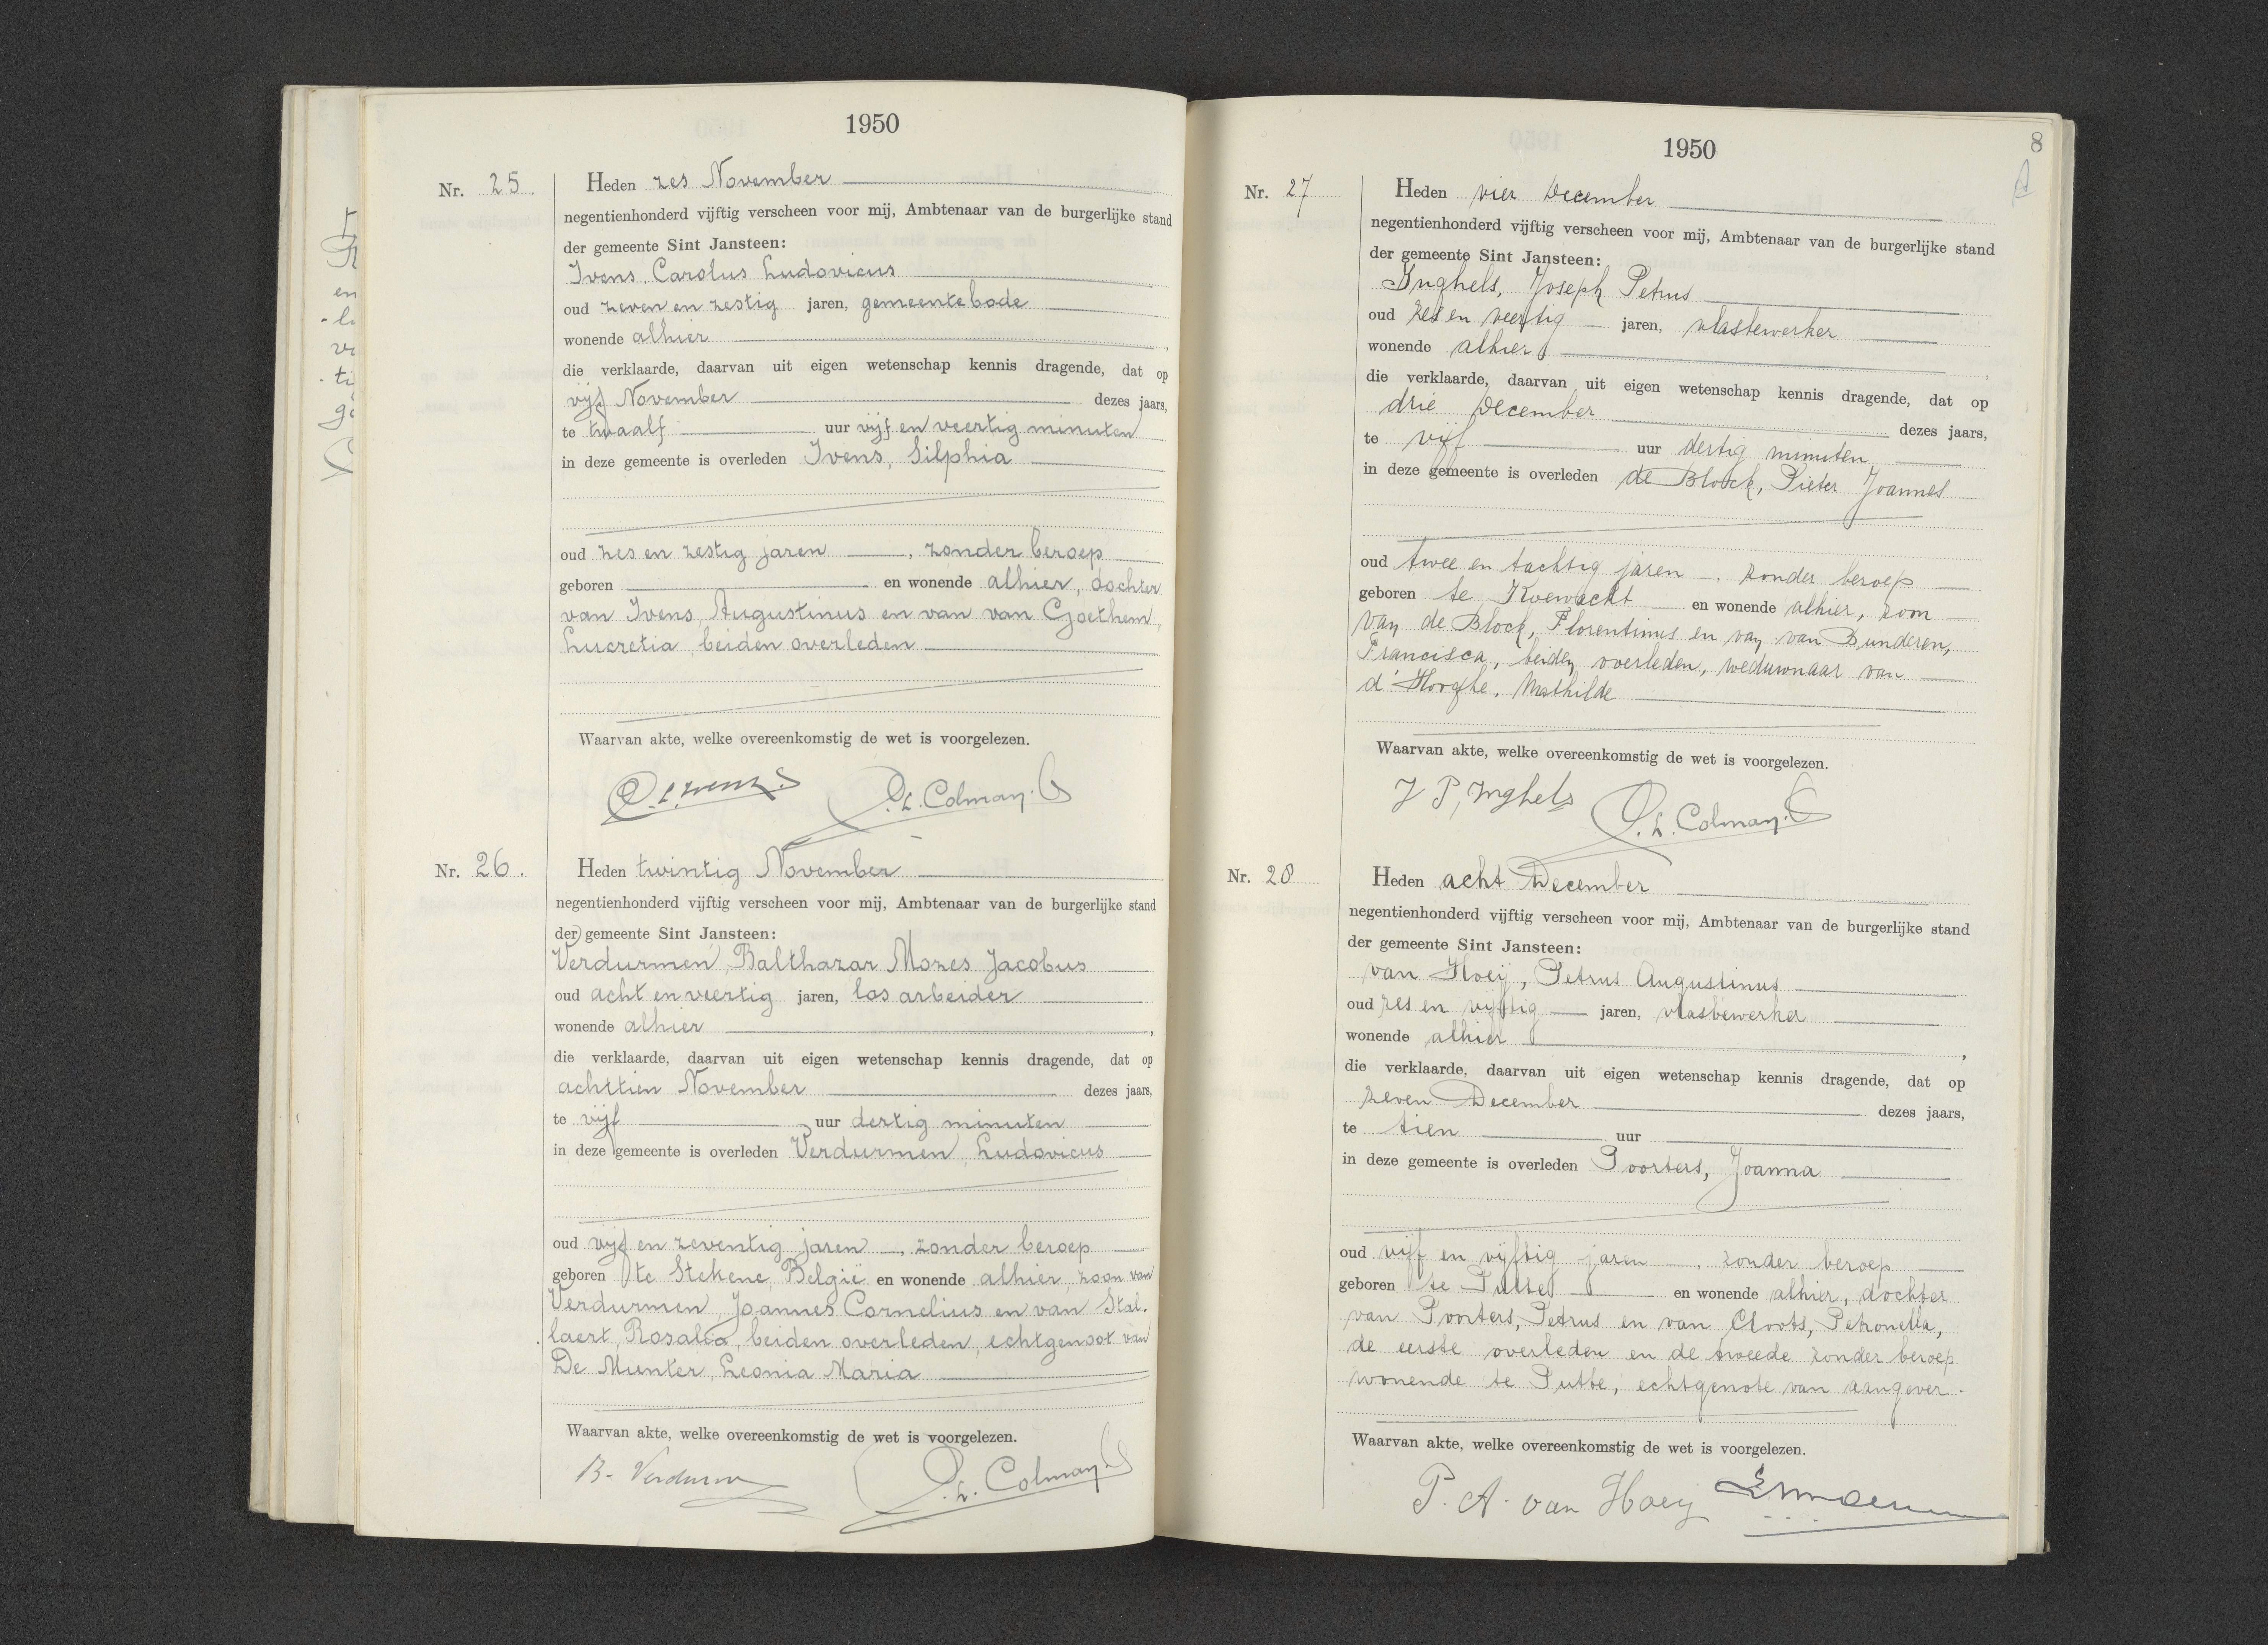 1950
Nr. 25.
Heden zes November
negentienhonderd vijftig verscheen voor mij, Ambtenaar van de burgerlijke stand
der gemeente Sint Jansteen:
Ivens, Carolus Ludovicus
oud zeven en zestig jaren, gemeentebode
wonende alhier,
die verklaarde, daarvan uit eigen wetenschap kennis dragende, dat op
vijf November dezes jaars,
te twaalf uur vijf en veertig minuten
in deze gemeente is overleden Ivens, Silphia
oud zes en zestig jaren, zonder beroep
geboren en wonende alhier, dochter
van Ivens, Augustinus en van van Goethem,
Lucretia, beiden overleden
Waarvan akte, welke overeenkomstig de wet is voorgelezen.
L. Colman
Nr. 26.
Heden twintig November
negentienhonderd vijftig verscheen voor mij, Ambtenaar van de burgerlijke stand
der gemeente Sint Jansteen:
Verdurmen, Balthazar Mozes Jacobus
oud acht en veertig jaren, los arbeider
wonende alhier,
die verklaarde, daarvan uit eigen wetenschap kennis dragende, dat op
achttien November dezes jaars,
te vijf uur dertig minuten
in deze gemeente is overleden Verdurmen, Ludovicus
oud vijf en zeventig jaren, zonder beroep
geboren te Stekene, België en wonende alhier, zoon van
Verdurmen, Joannes Cornelius en van Stal-
laert, Rosalia, beiden overleden, echtgenoot van
De Munter, Leonia Maria
Waarvan akte, welke overeenkomstig de wet is voorgelezen.
B. Verdurm
L. Colman
1950
8
Nr. 27
Heden vier December
negentienhonderd vijftig verscheen voor mij, Ambtenaar van de burgerlijke stand
der gemeente Sint Jansteen:
Inghels, Joseph Petrus
oud zes en veertig jaren, vlasbewerker
wonende alhier,
die verklaarde, daarvan uit eigen wetenschap kennis dragende, dat op
drie December dezes jaars,
te vijf uur dertig minuten
in deze gemeente is overleden de Block, Pieter Joannes
oud twee en tachtig jaren, zonder beroep
geboren te Koewacht en wonende alhier, zoon
van de Block, Florentinus en van van Bunderen,
Francisca, beiden overleden, weduwnaar van
d'Hooghe, Mathilde
Waarvan akte, welke overeenkomstig de wet is voorgelezen.
J P, Inghels
L. Colman
Nr. 28
Heden acht December
negentienhonderd vijftig verscheen voor mij, Ambtenaar van de burgerlijke stand
der gemeente Sint Jansteen:
van Hoeij, Petrus Augustinus
oud zes en vijftig jaren, vlasbewerker
wonende alhier,
die verklaarde, daarvan uit eigen wetenschap kennis dragende, dat op
zeven December dezes jaars,
te tien uur
in deze gemeente is overleden Poorters, Joanna
oud vijf en vijftig jaren, zonder beroep
geboren te Putte en wonende alhier, dochter
van Poorters, Petrus en van Cloots, Petronella,
de eerste overleden en de tweede zonder beroep
wonende te Putte, echtgenote van aangever.
Waarvan akte, welke overeenkomstig de wet is voorgelezen.
P. A. van Hoey